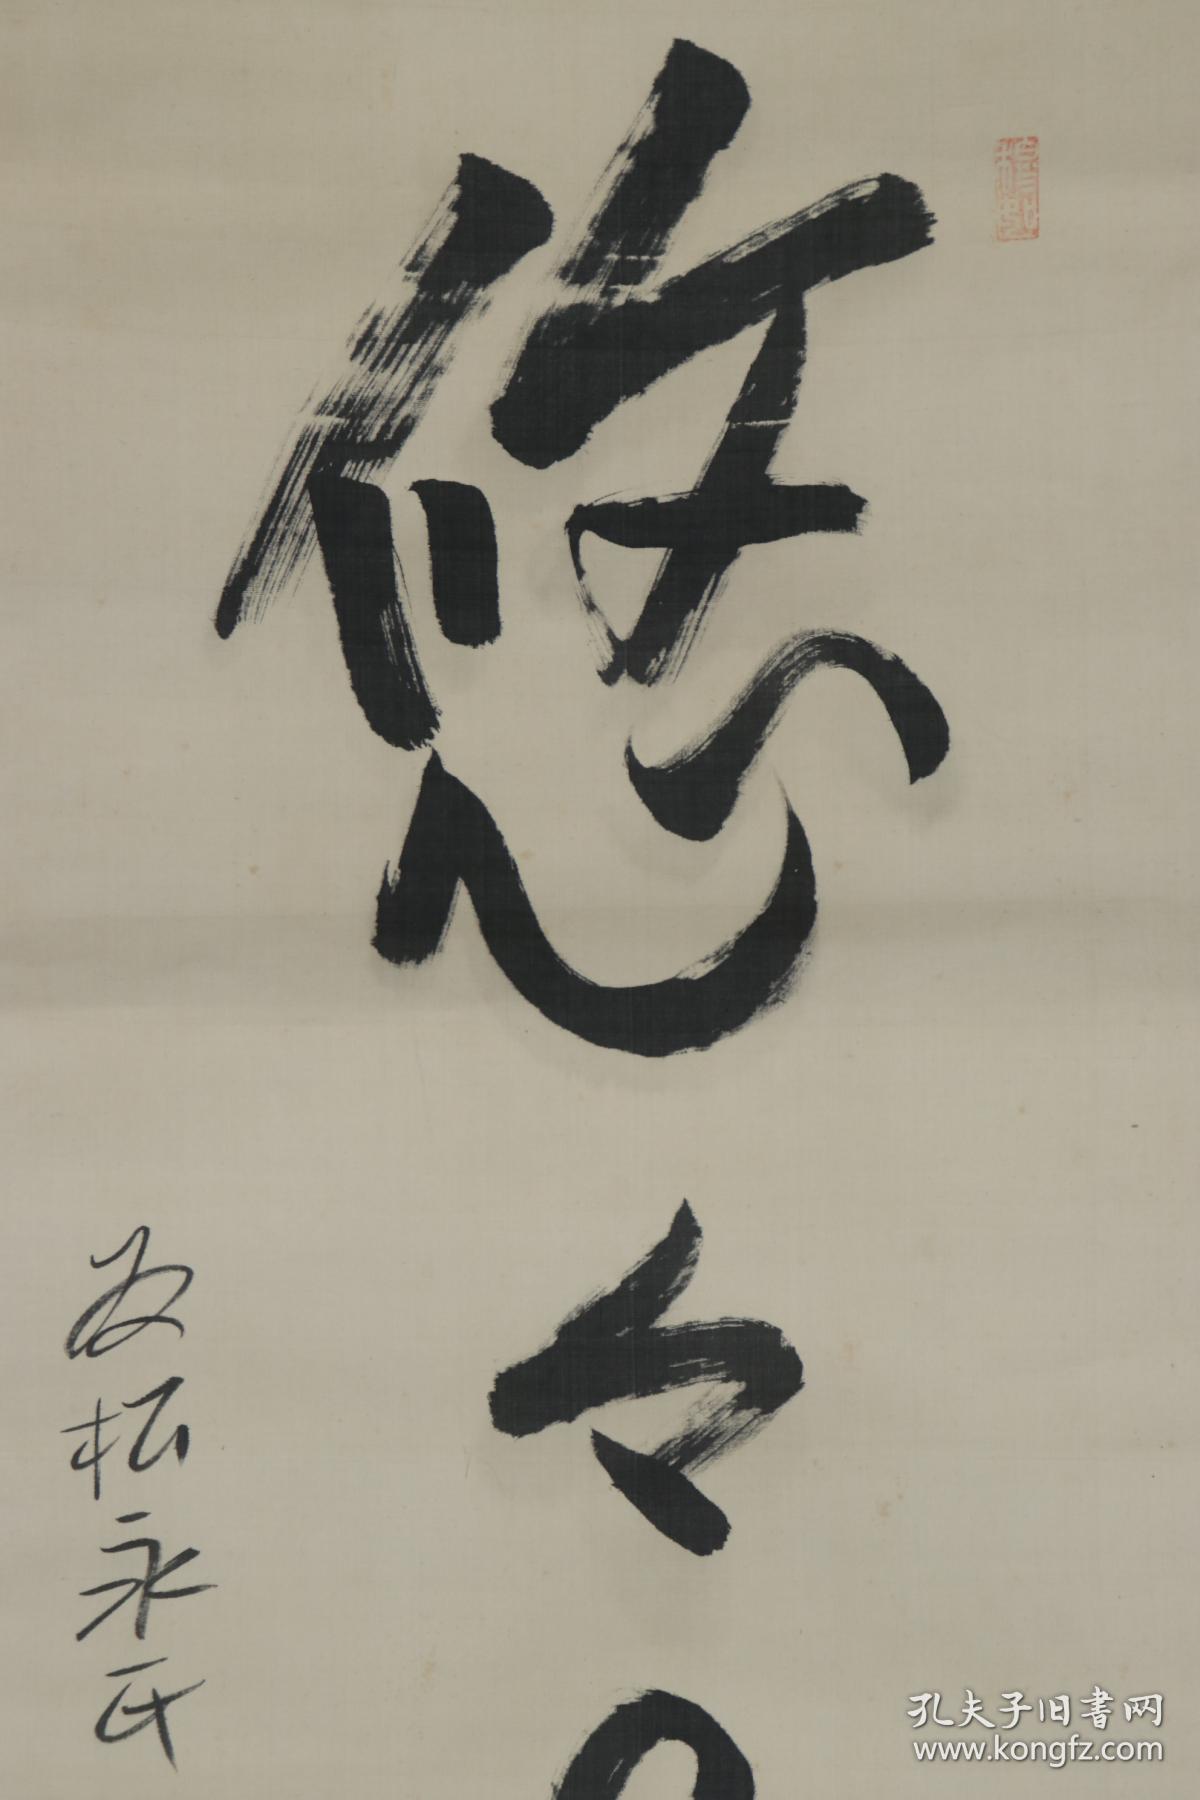 悠々
為松永氏
孔夫子旧书网
www.kongfz.com